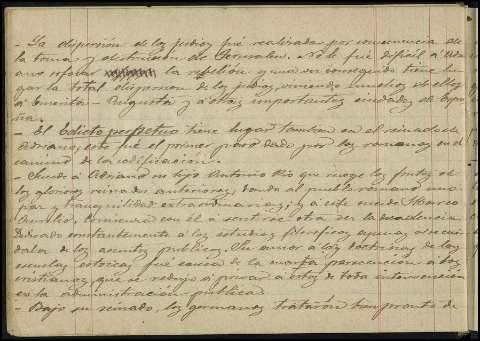 - La dispersión de los judíos fué realizada por consecuencia de
la toma y destrucción de Jerusalen. No le fué difícil á Adri
ano sofocar la rebelión y una vez conseguida tiene lu
gar la total dispersion de los judíos, viniendo muchos de ellos
á Emerita - Augusta y á otras importantes ciudades de Espa
ña.
- El Edicto perpetuo tiene lugar tambien en el reinado de
Adriano, este fué el primer paso dado por los romanos en el
camino de la codificación.
- Sucede á Adriano su hijo Antonio Pío que recoge los frutos de
los gloriosos reinados anteriores, dando al pueblo romano una
paz y tranquilidad extraordinarias; y á este sucede Marco
Aurelio, comienza con él á sentirse otra vez la decadencia.
Dedicado constantemente á los estudios filosoficos apenas se cui
daba de los asuntos publicos. Su amor á las doctrinas de las
escuelas estoicas fué causa de la cuarta persecución á los
cristianos, que se redujo á privar á estos de toda intervención
en la administración pública.
- Bajo su reinado, los germanos trataron bien pronto de